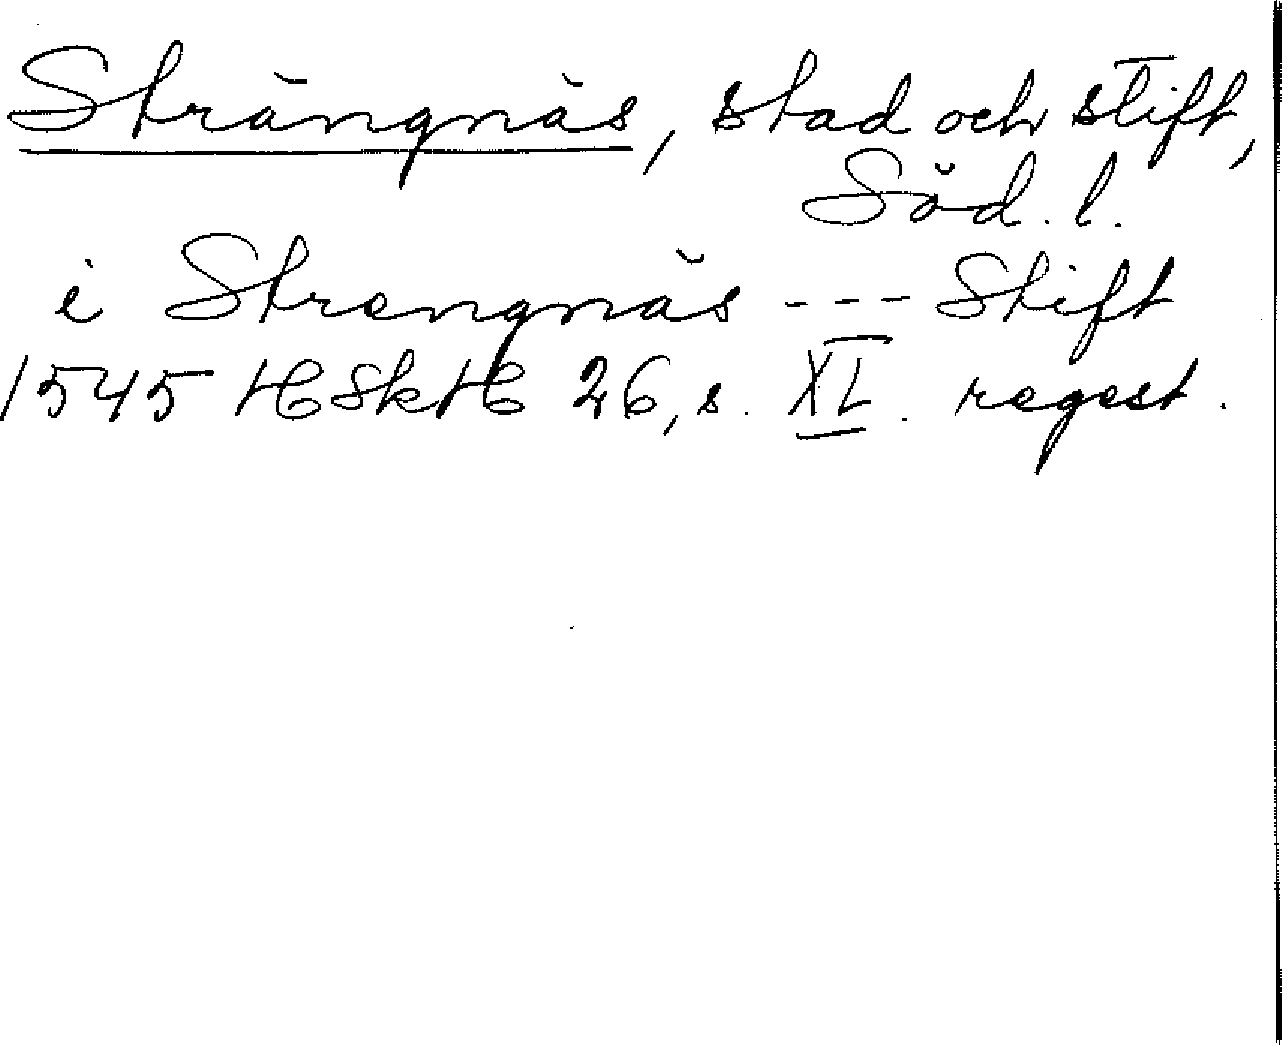 Strängnäs, stad och stift,
Söd. l.
i Strengnäs --- Stift
1545 HSkH 26, s. XL. regest.